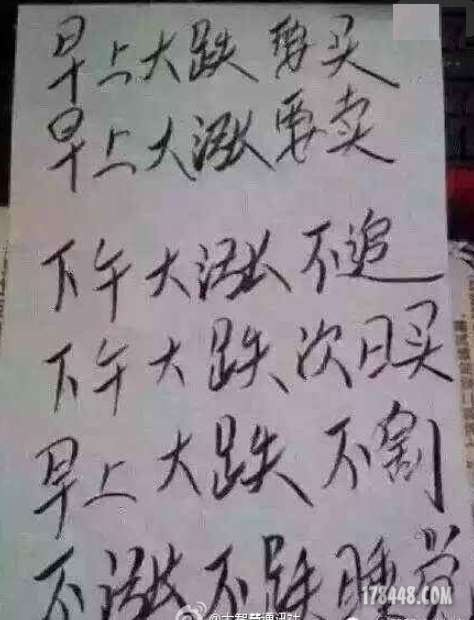 早上大跌要买
早上大涨要卖
下午大涨不追
下午大跌次日买
早上大跌不割
不涨不跌睡觉
178448.com